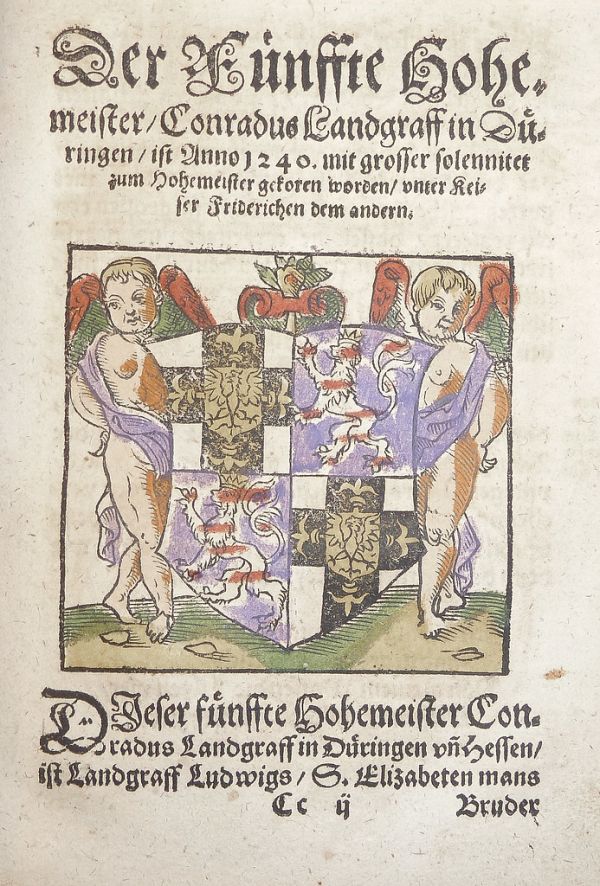 Der Fünffte Hohe-
meister/Conradus Landgraff in Dü-
ringen/ist Anno 1240. mit grosser solennitet
zum Hohemeister gekoren worden/vnter Kei-
ser Friderichen dem andern.
DIeser fünffte Hohemeister Con-
radus Landgraff in Düringen vñ Hessen/
ist Landgraff Ludwigs/S. Elizabeten mans
Cc ij Bruder